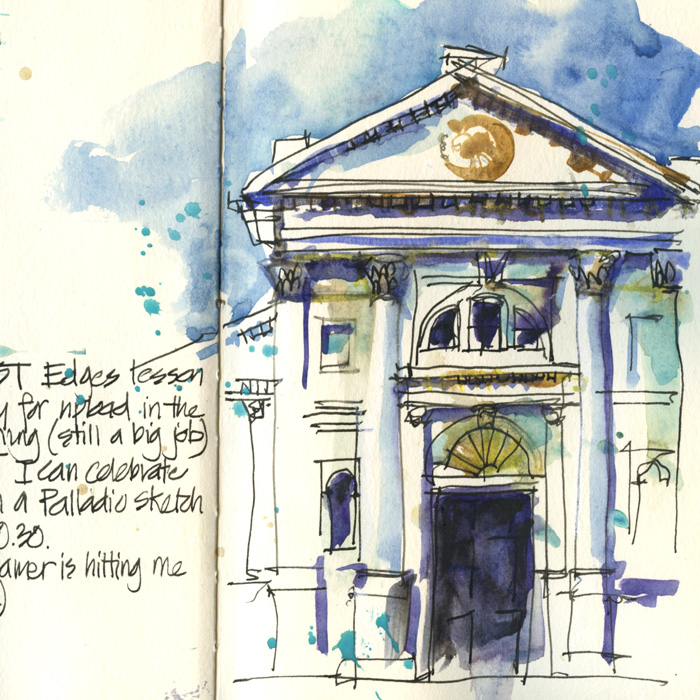 ST Edges lesson
y for upload in the
ning (still a big job)
I can celebrate
a Palladio sketch
0.30.
is hitting me